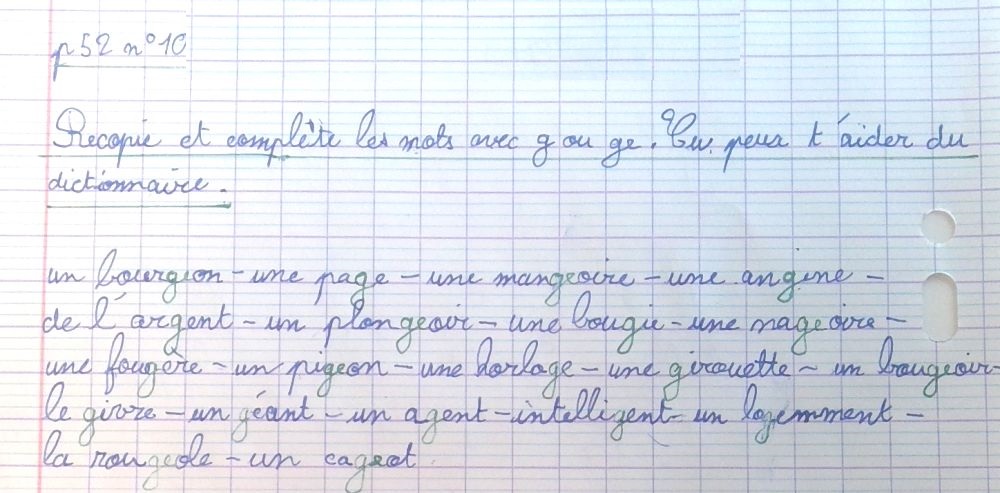 p 52 n° 10
Recopie et complète les mots avec g ou ge. Tu peux t'aider du
dictionnaire.
un bourgeon - une page - une mangeoire - une angine -
de l'argent - un plongeoir - une bougie - une nageoire -
une fougère - un pigeon - une horloge - une girouette - un bougeoir -
le givre - un géant - un agent - intelligent - un logemment -
la rougeole - un cageot